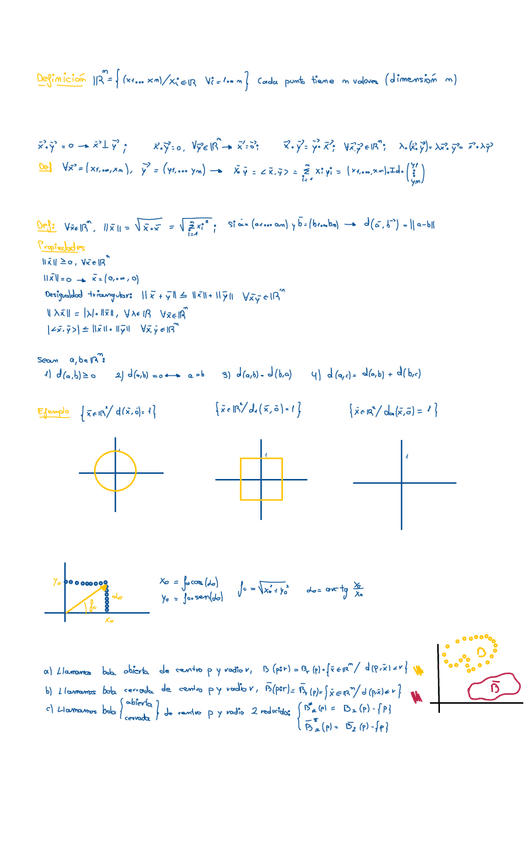 Definición ℝᵐ = { (x1,... xm) / xi ∈ ℝ ∀i = 1... m } Cada punto tiene m valores (dimensión m)
x⃗·y⃗ = 0 → x⃗ ⊥ y⃗ ; x⃗·y⃗ = 0, ∀y⃗ ∈ ℝᵐ → x⃗ = 0⃗; x⃗·y⃗ = y⃗·x⃗; ∀x⃗,y⃗ ∈ ℝᵐ; λ·(x⃗·y⃗) = λx⃗·y⃗ = x⃗·λy⃗
∀x⃗ = (x1,...,xm), y⃗ = (y1,... ym) → x̄·ȳ = <x̄,ȳ> = Σ xi yi = (x1,...,xm)·Id·(y1 ⋮ ym)
Def: ∀x̄ ∈ ℝᵐ, ||x̄|| = √x̄·x̄ = √Σ xi² ; Si ā = (a1... am) y b̄ = (b1... bm) → d(ā, b̄) = ||a-b||
Propiedades
||x̄|| ≥ 0, ∀x̄ ∈ ℝᵐ
||x̄|| = 0 → x̄ = (0,...,0)
Desigualdad triangular: ||x̄ + ȳ|| ≤ ||x̄|| + ||ȳ|| ∀x̄,ȳ ∈ ℝᵐ
||λx̄|| = |λ|·||x̄||, ∀λ ∈ ℝ ∀x̄ ∈ ℝᵐ
|<x̄,ȳ>| ≤ ||x̄||·||ȳ|| ∀x̄,ȳ ∈ ℝᵐ
Sean a,b ∈ ℝᵐ:
1) d(a,b) ≥ 0 2) d(a,b) = 0 ↔ a = b 3) d(a,b) = d(b,a) 4) d(a,c) = d(a,b) + d(b,c)
Ejemplo { x̄ ∈ ℝ² / d(x̄,ō) = 1 } { x̄ ∈ ℝ² / d1(x̄,ō) = 1 } { x̄ ∈ ℝ² / d∞(x̄,ō) = 1 }
1 1 1
y0 x0 = ρ0 cos(α0) ρ0 = √x0² + y0² α0 = arctg y0/x0
ρ0 α0 y0 = ρ0 sen(α0)
x0
a) Llamamos bola abierta de centro p y radio r, B(p;r) = Br(p) = { x̄ ∈ ℝᵐ / d(p,x̄) < r }
B
b) Llamamos bola cerrada de centro p y radio r, B̄(p;r) = B̄r(p) = { x̄ ∈ ℝᵐ / d(p,x̄) ≤ r }
B̄
c) Llamamos bola { abierta cerrada } de centro p y radio 2 reducida: { B*2(p) = B2(p) - {p}
B̄*2(p) = B̄2(p) - {p}